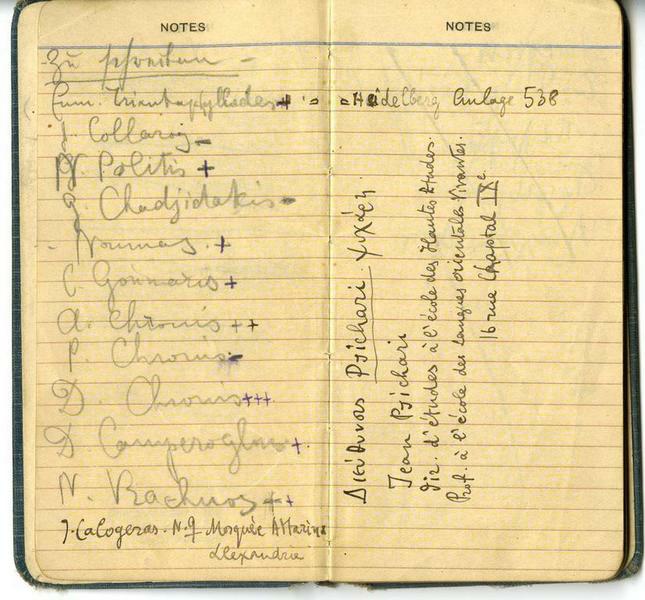 NOTES
Zu schreiben —
Em. Triantaphyllides +
J. Collaros —
N. Politis +
G. Chadjidakis —
Noumas. +
C. Gounaris +
A. Chronis ++
P. Chronis —
D. Chronis +++
D. Camperoglou +
N. Bachnos ++
J. Calogeras. N.9 Mosquée Attarine
Alexandria
NOTES
Heidelberg Anlage 53B
Διεύθυνσις Psichari Ψυχάρη
Jean Psichari
Dir. d'études à l'école des Hautes Etudes.
Prof. à l'école des langues orientales Vivantes.
16 rue Chaptal IXe